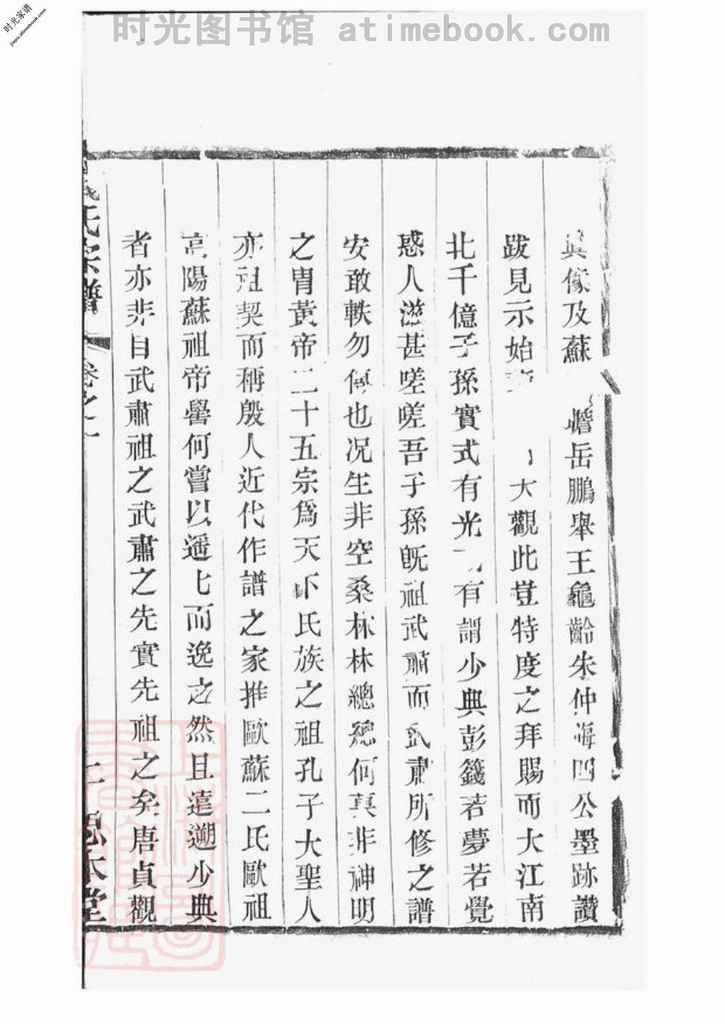 时光图书馆 atimebook.com
时光家谱
真像及蘇 瞻岳鵬舉王龜齡朱仲晦四公墨跡讚
跋見示始 大觀此豈特度之拜賜而大江南
北千億子孫實式有光 有謂少典彭籛若夢若覺
惑人滋甚嗟嗟吾子孫旣祖武肅而武肅所修之譜
安敢軼勿何也況生非空桑林林總總何莫非神明
之胄黃帝二十五宗爲天下氏族之祖孔子大聖人
亦祖契而稱殷人近代作譜之家推歐蘇二氏歐祖
高陽蘇祖帝嚳何嘗以遥七而逸之然且遠遡少典
者亦非自武肅祖之武肅之先實先祖之矣唐貞觀
氏宗譜 卷之一 本堂